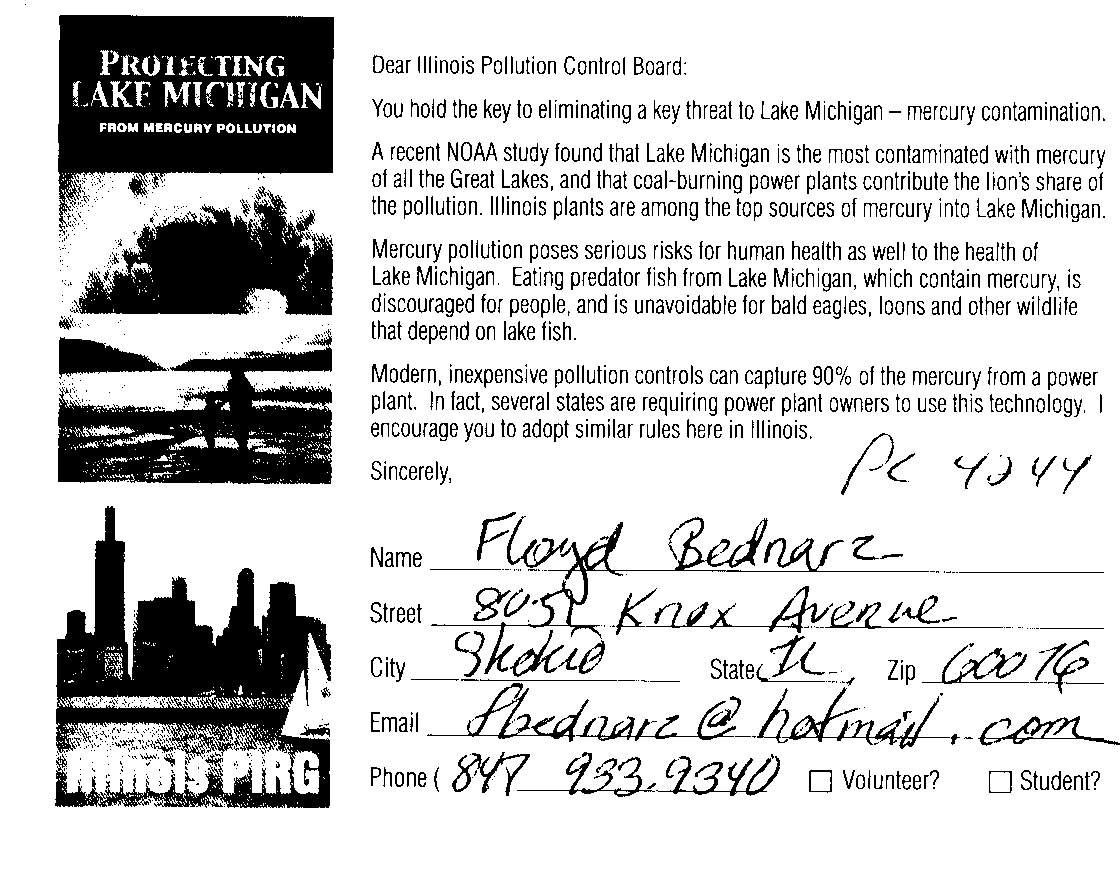 PROTECTING
LAKE MICHIGAN
FROM MERCURY POLLUTION
Dear Illinois Pollution Control Board:
You hold the key to eliminating a key threat to Lake Michigan – mercury contamination.
A recent NOAA study found that Lake Michigan is the most contaminated with mercury
of all the Great Lakes, and that coal-burning power plants contribute the lion's share of
the pollution. Illinois plants are among the top sources of mercury into Lake Michigan.
Mercury pollution poses serious risks for human health as well to the health of
Lake Michigan. Eating predator fish from Lake Michigan, which contain mercury, is
discouraged for people, and is unavoidable for bald eagles, loons and other wildlife
that depend on lake fish.
Modern, inexpensive pollution controls can capture 90% of the mercury from a power
plant. In fact, several states are requiring power plant owners to use this technology. I
encourage you to adopt similar rules here in Illinois.
Sincerely,
PC 4244
Name Floyd Bednarz
Street 8052 Knox Avenue
City Skokie State IL Zip 60076
Email fbednarz@hotmail.com
Phone ( 847 933.9340 Volunteer? Student?
Illinois PIRG